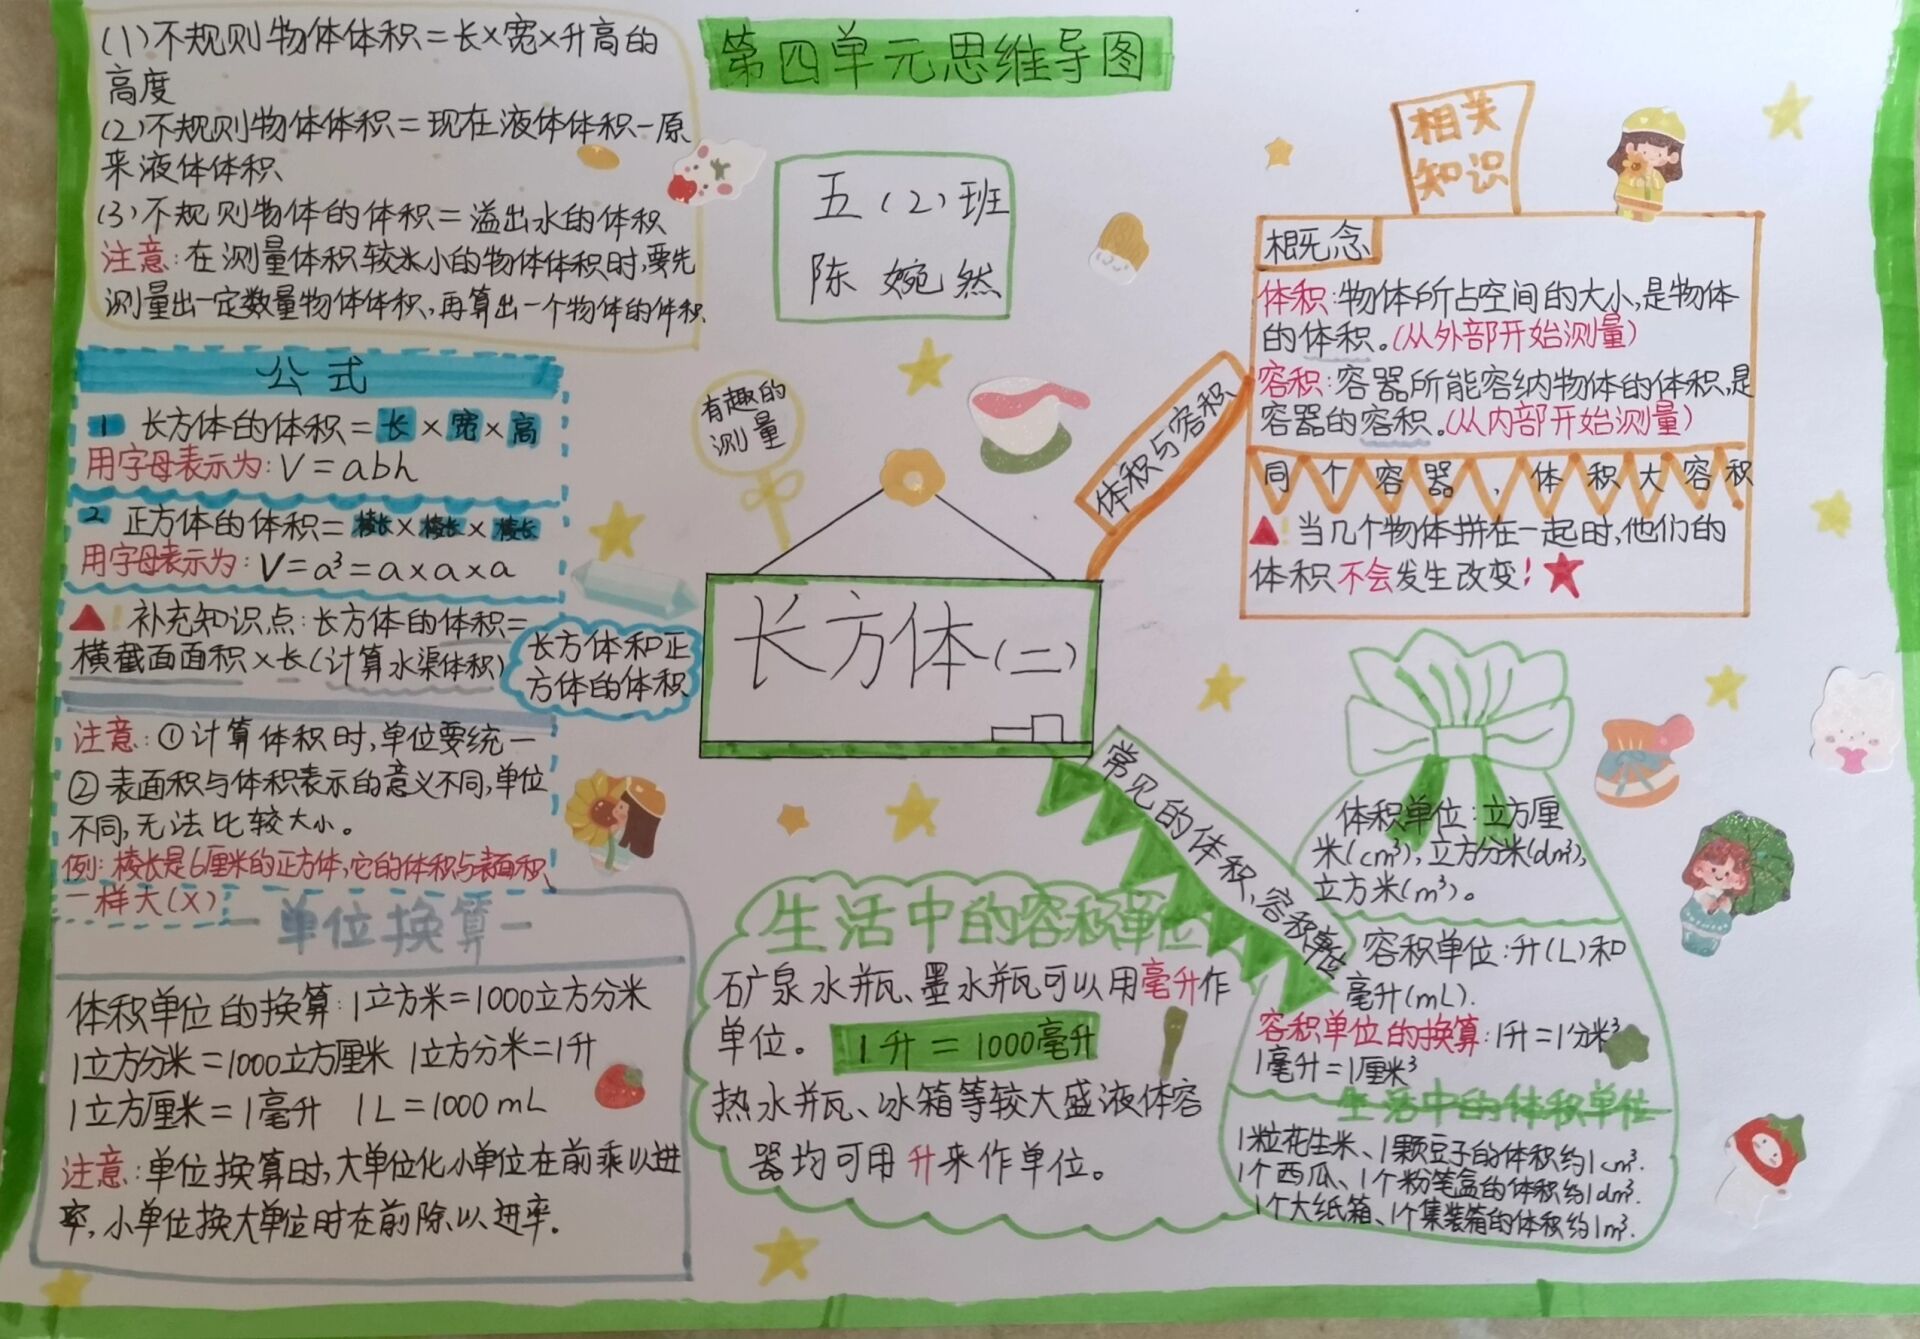 第四单元思维导图
五(2)班
陈婉然
(1)不规则物体体积=长×宽×升高的
高度
(2)不规则物体体积=现在液体体积-原
来液体体积
(3)不规则物体的体积=溢出水的体积
注意:在测量体积较小的物体体积时,要先
测量出一定数量物体体积,再算出一个物体的体积
有趣的
测量
公式
1 长方体的体积=长×宽×高
用字母表示为:V=abh
2 正方体的体积=棱长×棱长×棱长
用字母表示为:V=a³=a×a×a
! 补充知识点:长方体的体积=
横截面面积×长(计算水渠体积)
注意:①计算体积时,单位要统一
②表面积与体积表示的意义不同,单位
不同,无法比较大小。
例:棱长是6厘米的正方体,它的体积与表面积
一样大(X)
长方体和正
方体的体积
长方体(二)
体积与容积
相关
知识
概念
体积:物体所占空间的大小,是物体
的体积。(从外部开始测量)
容积:容器所能容纳物体的体积,是
容器的容积。(从内部开始测量)
同个容器,体积大容积
!当几个物体拼在一起时,他们的
体积不会发生改变!
常见的体积、容积单位
体积单位:立方厘
米(cm³),立方分米(dm³),
立方米(m³)。
容积单位:升(L)和
毫升(mL).
容积单位的换算:1升=1分米³
1毫升=1厘米³
生活中的体积单位
1粒花生米、1颗豆子的体积约1cm³.
1个西瓜、1个粉笔盒的体积约1dm³.
1个大纸箱、1个集装箱的体积约1m³.
生活中的容积单位
矿泉水瓶、墨水瓶可以用毫升作
单位。 1升=1000毫升
热水瓶、冰箱等较大盛液体容
器均可用升来作单位。
单位换算
体积单位的换算:1立方米=1000立方分米
1立方分米=1000立方厘米 1立方分米=1升
1立方厘米=1毫升 1L=1000mL
注意:单位换算时,大单位化小单位在前乘以进
率,小单位换大单位时在前除以进率。